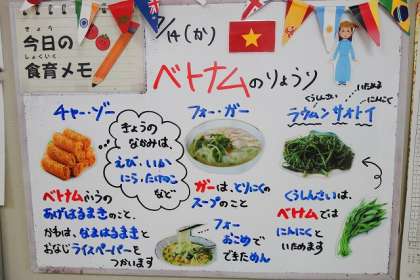 きょう
今日の
しょくいく
食育メモ
7/14(か)
ベトナムのりょうり
チャー・ゾー
きょうの
なかみは、
えび・いか
にら・たけのこ
など
ベトナムふうの
あげはるまきのこと。
かわは、なまはるまきと
おなじライスペーパーを
つかいます
フォー・ガー
ガーは、とりにくの
スープのこと
フォー
おこめで
できためん
くうしんさい
いためる
にんにく
ラウムンサオトイ
くうしんさいは、
ベトナムでは
にんにくと
いためます